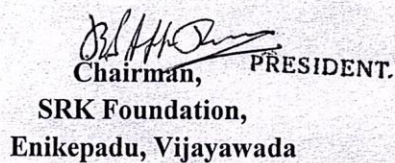 Chairman, PRESIDENT.
SRK Foundation,
Enikepadu, Vijayawada